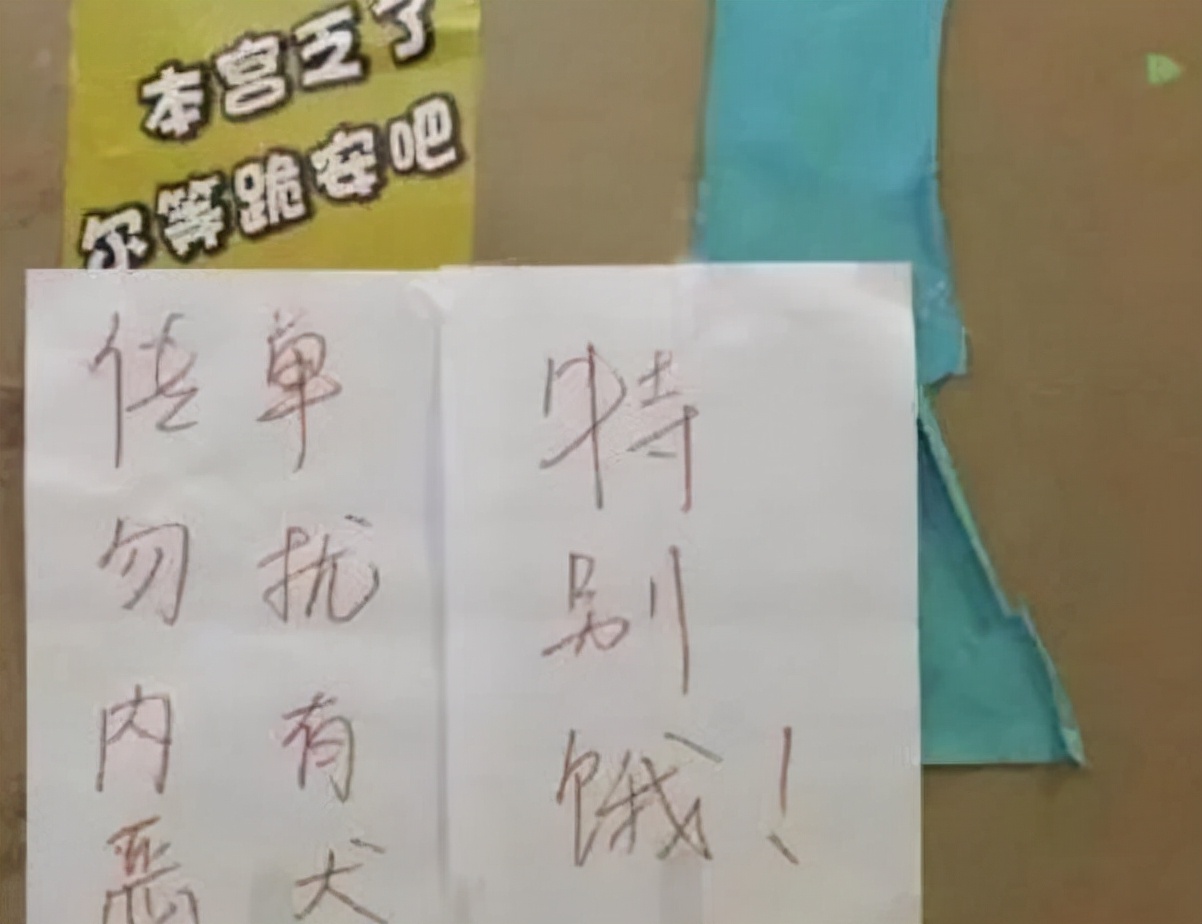 本宫乏了
尔等跪安吧
传单
勿扰
内有
恶犬
特
别
饿！